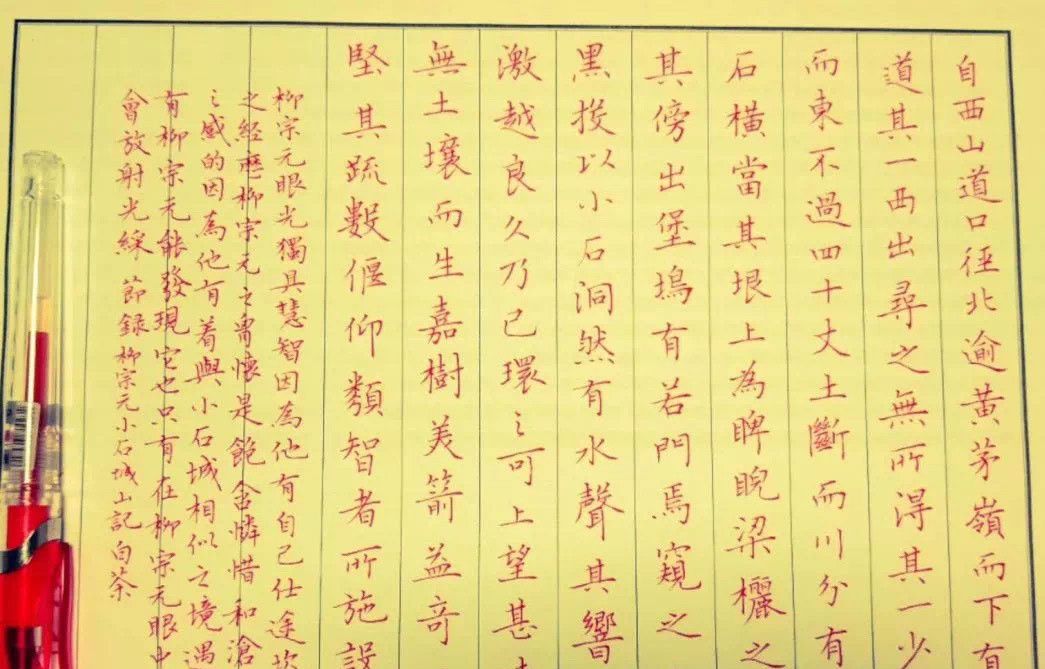 自西山道口徑北逾黃茅嶺而下有
道其一西出尋之無所得其一少
而東不過四十丈土斷而川分有
石橫當其垠上為睥睨梁欐之
其傍出堡塢有若門焉窺之
黑投以小石洞然有水聲其響
激越良久乃已環之可上望甚
無土壤而生嘉樹美箭益奇
堅其疏數偃仰類智者所施設
柳宗元眼光獨具慧智因為他有自己仕途坎
之經歷柳宗元之胷懷是飽含憐惜和滄
之感的因為他有着與小石城相似之境遇
有柳宗元能發現它也只有在柳宗元眼中
會放射光綵節録柳宗元小石城山記白茶